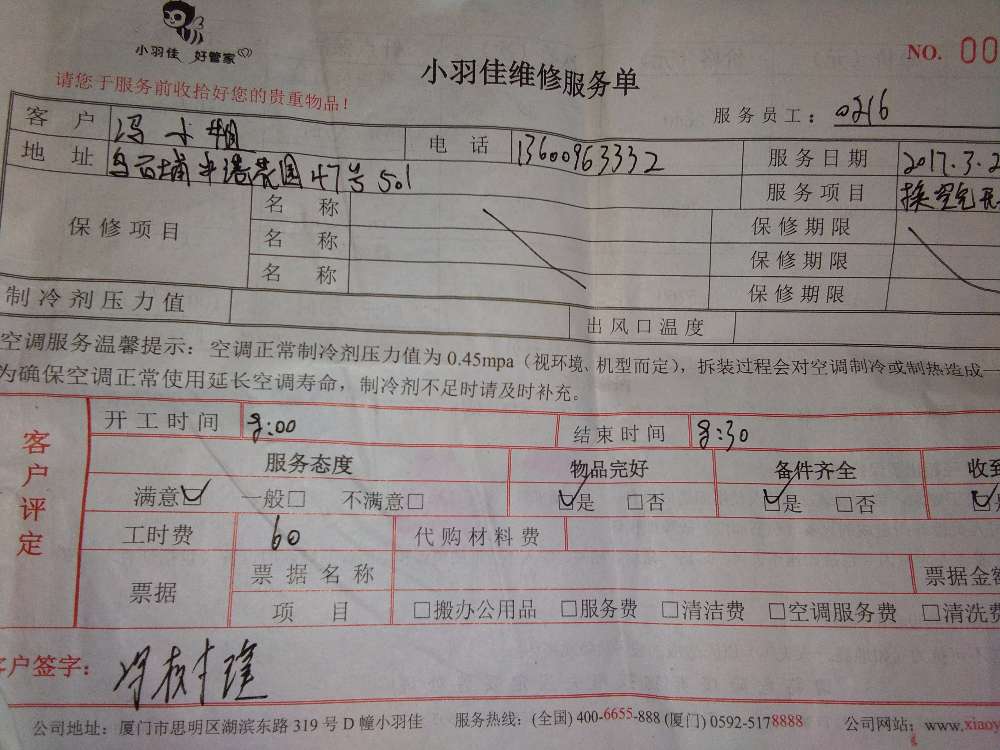 小羽佳 好管家
小羽佳维修服务单
NO. 00
请您于服务前收拾好您的贵重物品！
服务员工： 0216
客 户 冯小姐 电 话 13600963332 服务日期 2017.3.2
地 址 乌石埔 花园47号501 服务项目 换
保修项目 名 称 保修期限
名 称 保修期限
名 称 保修期限
制冷剂压力值 出风口温度
空调服务温馨提示：空调正常制冷剂压力值为0.45mpa（视环境、机型而定），拆装过程会对空调制冷或制热造成一
为确保空调正常使用延长空调寿命，制冷剂不足时请及时补充。
客户评定
开工时间 8:00 结束时间 8:30
服务态度 物品完好 备件齐全 收到
满意☑ 一般□ 不满意□ ☑是 □否 ☑是 □否 ☑是
工时费 60 代购材料费
票据 票据名称 票据金额
项 目 □搬办公用品 □服务费 □清洁费 □空调服务费 □清洗费
客户签字：
公司地址：厦门市思明区湖滨东路319号D幢小羽佳 服务热线：(全国) 400-6655-888 (厦门) 0592-5178888 公司网站：www.xiaoy